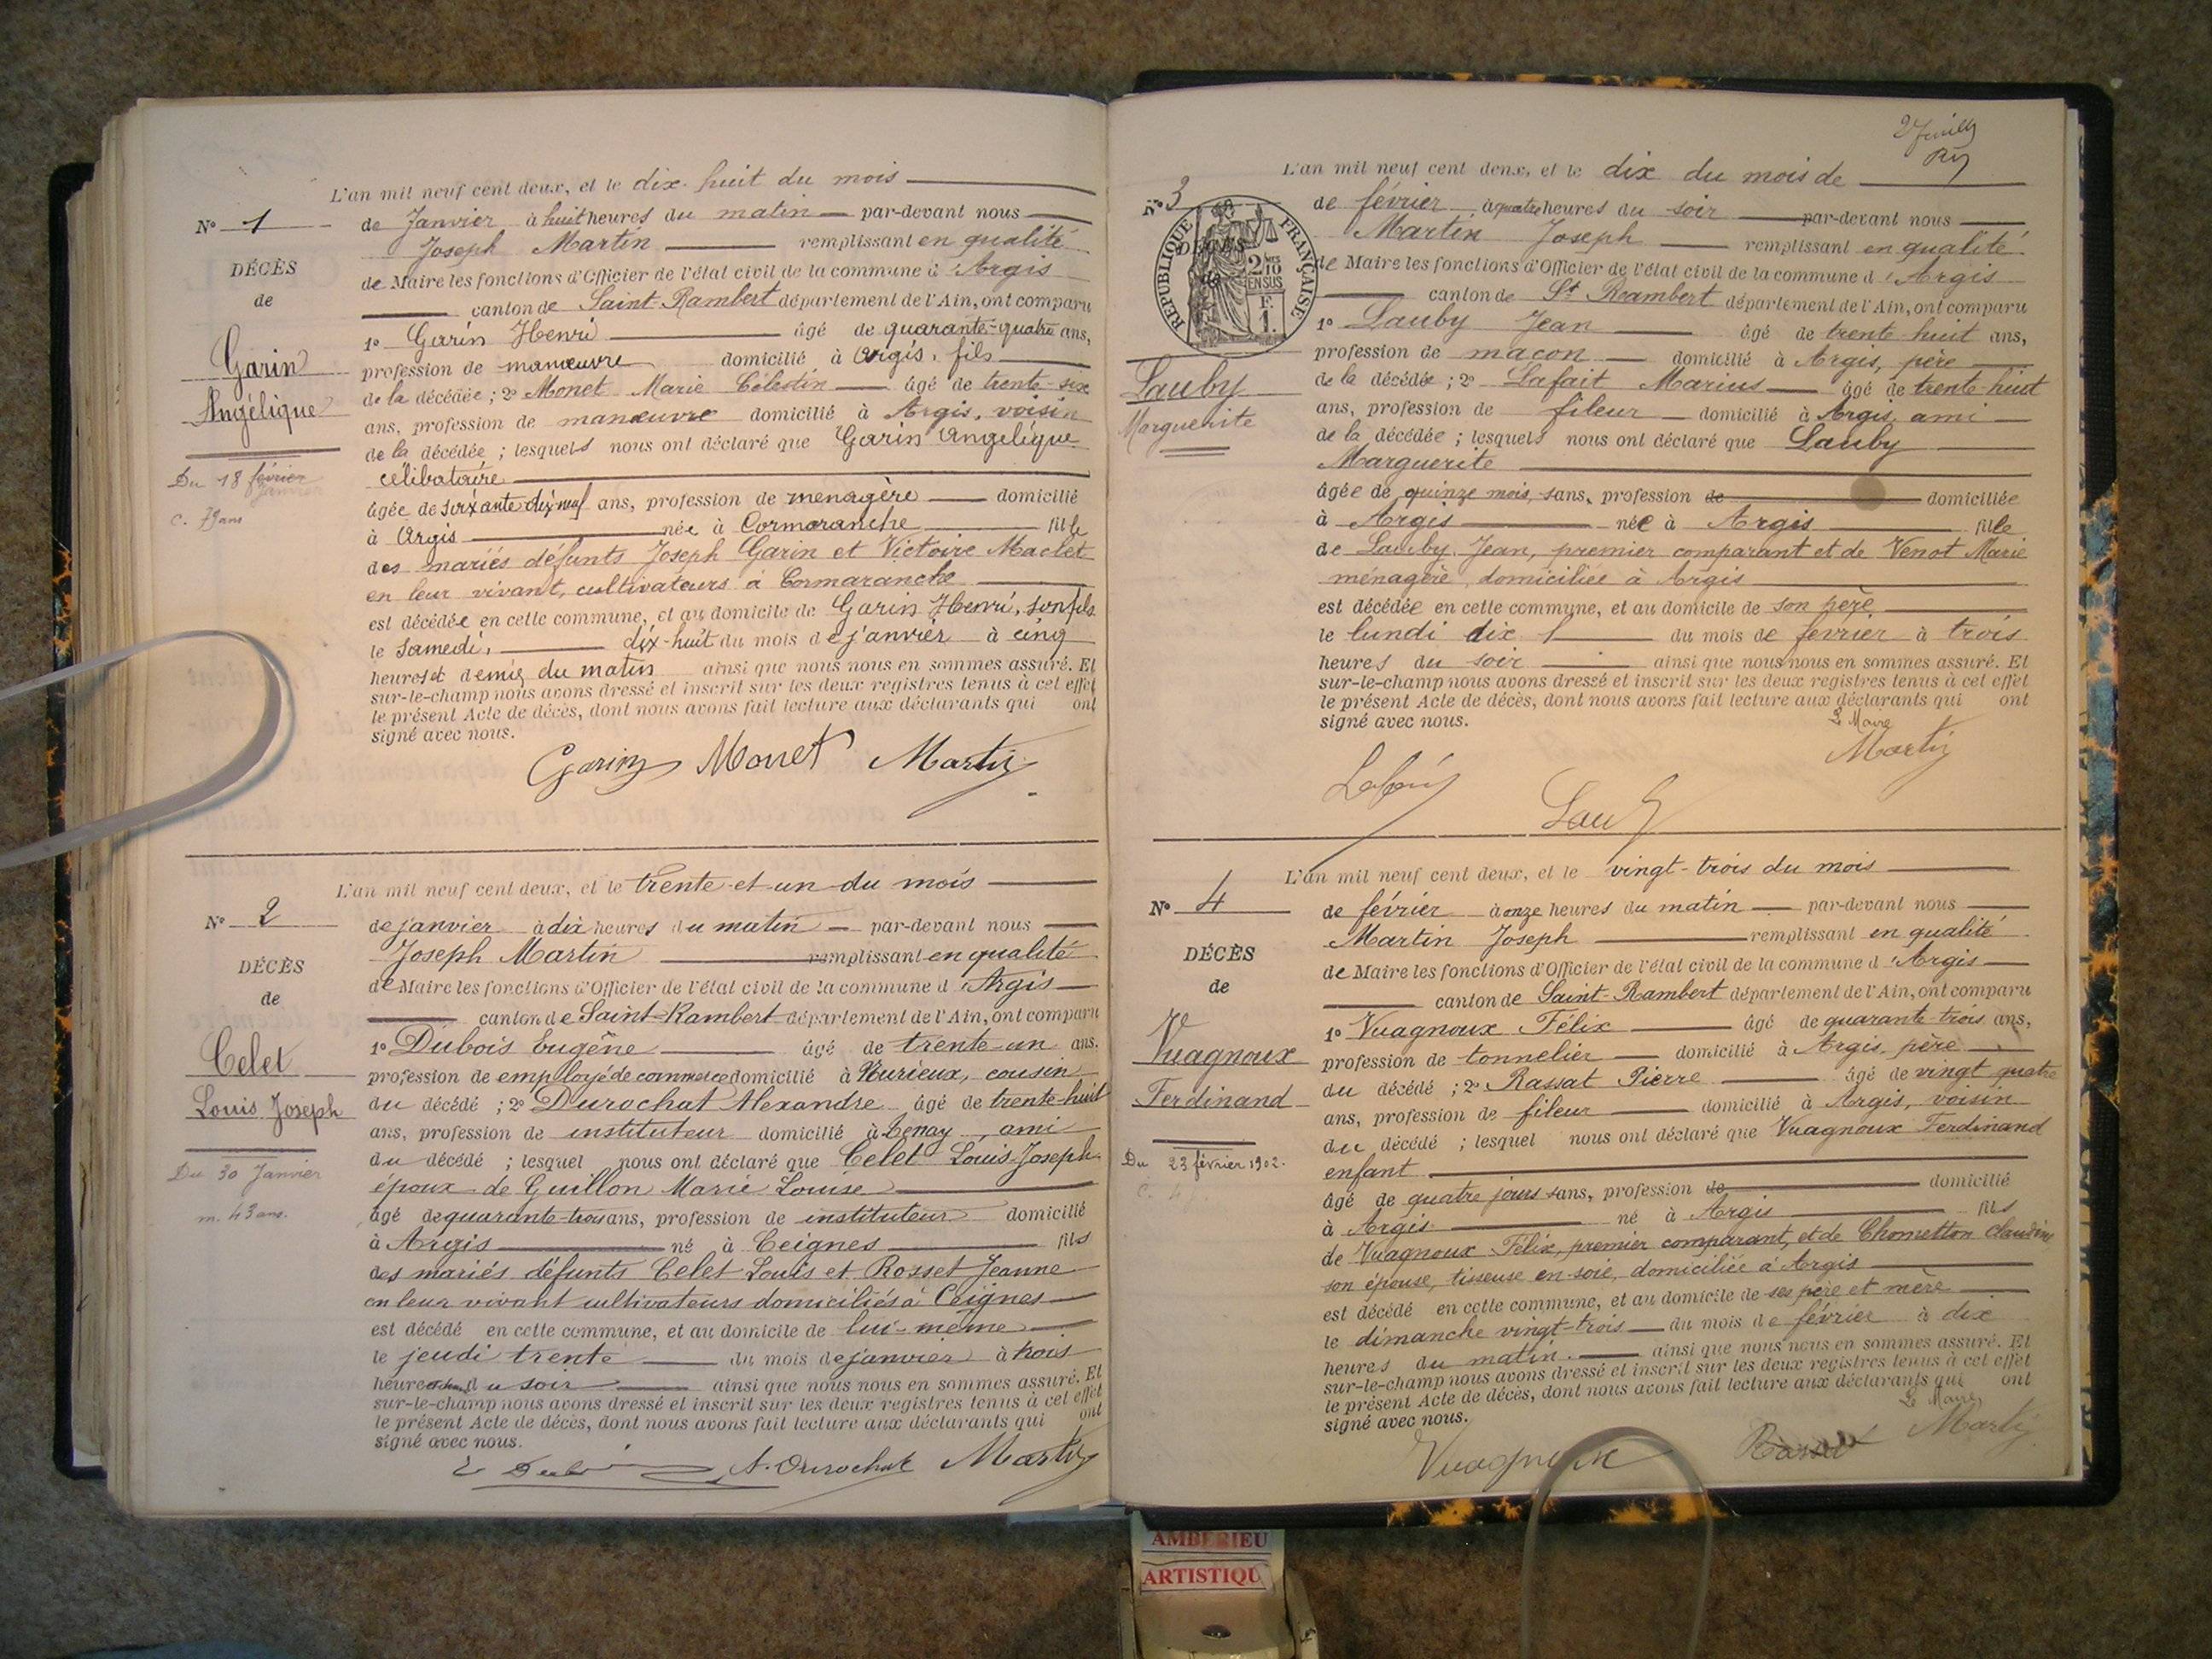 L'an mil neuf cent deux, et le dix-huit du mois
N° 1
de Janvier à huit heures du matin par-devant nous
Joseph Martin remplissant en qualité
DÉCÈS
de Maire les fonctions d'Officier de l'état civil de la commune d'Argis
de
canton de Saint-Rambert département de l'Ain, ont comparu
1° Garin Henri âgé de quarante-quatre ans,
Garin
profession de manœuvre domicilié à Argis, fils
de la décédée ; 2° Monet Marie Célestin âgé de trente-six
Angélique
ans, profession de manœuvre domicilié à Argis, voisin
de la décédée ; lesquels nous ont déclaré que Garin Angélique
Du 18 février
janvier
célibataire
c. 79 ans
âgée de soixante-dix-neuf ans, profession de ménagère domicilié
à Argis née à Cormaranche fille
des mariés défunts Joseph Garin et Victoire Maclet
en leur vivant, cultivateurs à Cormaranche
est décédée en cette commune, et au domicile de Garin Henri, son fils
le samedi, dix-huit du mois de janvier à cinq
heures et demie du matin ainsi que nous nous en sommes assuré. Et
sur-le-champ nous avons dressé et inscrit sur les deux registres tenus à cet effet
le présent Acte de décès, dont nous avons fait lecture aux déclarants qui ont
signé avec nous.
Garin Monet Martin
L'an mil neuf cent deux, et le trente-et-un du mois
N° 2
de janvier à dix heures du matin par-devant nous
Joseph Martin remplissant en qualité
DÉCÈS
de Maire les fonctions d'Officier de l'état civil de la commune d'Argis
de
canton de Saint-Rambert département de l'Ain, ont comparu
1° Dubois Eugène âgé de trente-un ans.
Celet
profession de employé de commerce domicilié à Nurieux, cousin
Louis Joseph
du décédé ; 2° Durochat Alexandre âgé de trente-huit
ans, profession de instituteur domicilié à Tenay, ami
du décédé ; lesquel nous ont déclaré que Celet Louis-Joseph
Du 30 Janvier
époux de Guillon Marie Louise
m. 43 ans.
âgé de quarante-trois ans, profession de instituteur domicilié
à Argis né à Ceignes fils
des mariés défunts Celet Louis et Rosset Jeanne
en leur vivant cultivateurs domiciliés à Ceignes
est décédé en cette commune, et au domicile de lui-même
le jeudi trente du mois de janvier à trois
heures du soir ainsi que nous nous en sommes assuré. Et
sur-le-champ nous avons dressé et inscrit sur les deux registres tenus à cet effet
le présent Acte de décès, dont nous avons fait lecture aux déclarants qui ont
signé avec nous.
A. Durochat Martin
L'an mil neuf cent deux, et le dix du mois de
N° 3
de février à quatre heures du soir par-devant nous
Martin Joseph remplissant en qualité
RÉPUBLIQUE FRANÇAISE
2/10 EN SUS
F. 1.
DÉCÈS
de
de Maire les fonctions d'Officier de l'état civil de la commune d'Argis
canton de St Rambert département de l'Ain, ont comparu
1° Lauby Jean âgé de trente huit ans,
profession de maçon domicilié à Argis, père
Lauby
de la décédée ; 2° Lafait Marius âgé de trente-huit
ans, profession de fileur domicilié à Argis, ami
Marguerite
de la décédée ; lesquels nous ont déclaré que Lauby
Marguerite
âgée de quinze mois, sans, profession de domiciliée
à Argis née à Argis fille
de Lauby Jean, premier comparant et de Venot Marie
ménagère, domiciliée à Argis
est décédée en cette commune, et au domicile de son père
le lundi dix du mois de février à trois
heures du soir ainsi que nous nous en sommes assuré. Et
sur-le-champ nous avons dressé et inscrit sur les deux registres tenus à cet effet
le présent Acte de décès, dont nous avons fait lecture aux déclarants qui ont
signé avec nous.
Le Maire
Martin
L'an mil neuf cent deux, et le vingt-trois du mois
N° 4
de février à onze heures du matin par-devant nous
Martin Joseph remplissant en qualité
DÉCÈS
de Maire les fonctions d'Officier de l'état civil de la commune d'Argis
de
canton de Saint-Rambert département de l'Ain, ont comparu
1° Vuagnoux Félix âgé de quarante-trois ans,
Vuagnoux
profession de tonnelier domicilié à Argis, père
du décédé ; 2° Rassat Pierre âgé de vingt quatre
Ferdinand
ans, profession de fileur domicilié à Argis, voisin
du décédé ; lesquel nous ont déclaré que Vuagnoux Ferdinand
Du 23 février 1902.
enfant
âgé de quatre jours sans, profession de domicilié
à Argis né à Argis fils
de Vuagnoux Félix, premier comparant, et de Chometton Claudine
son épouse, tisseuse en soie, domiciliée à Argis
est décédé en cette commune, et au domicile de ses père et mère
le dimanche vingt-trois du mois de février à dix
heures du matin. ainsi que nous nous en sommes assuré. Et
sur-le-champ nous avons dressé et inscrit sur les deux registres tenus à cet effet
le présent Acte de décès, dont nous avons fait lecture aux déclarants qui ont
signé avec nous.
Le Maire
Vuagnoux Rassat Martin
AMBERIEU
ARTISTIQU